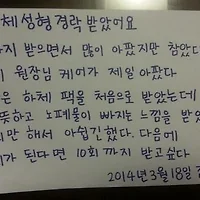 체성형경락 받았어요
지 받으면서 많이 아팠지만 참았다
원장님 케어가 제일 아팠다
은 하체 팩을 처음으로 받았는데
뜻하고 노폐물이 빠지는 느낌을 받았
만 해서 아쉽긴했다. 다음에
가 된다면 10회까지 받고싶다
2014년3월18일